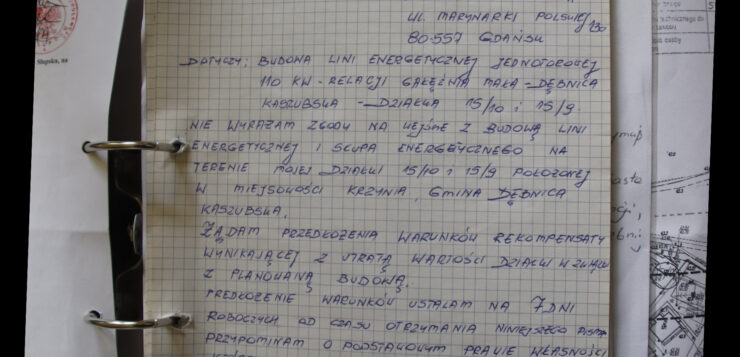 UL. MARYNARKI POLSKIEJ 130
80-557 GDAŃSK
DOTYCZY: BUDOWA LINI ENERGETYCZNEJ JEDNOTOROWEJ
110 KW - RELACJI GAŁĘŹNIA MAŁA - DĘBNICA
KASZUBSKA - DZIAŁKA 15/10 i 15/9.
NIE WYRAŻAM ZGODY NA WEJŚCIE Z BUDOWĄ LINI
ENERGETYCZNEJ I SŁUPA ENERGETYCZNEGO NA
TERENIE MOJEJ DZIAŁKI 15/10 i 15/9 POŁOŻONEJ
W MIEJSOWOŚCI KRZYNIA, GMINA DĘBNICA
KASZUBSKA.
ŻĄDAM PRZEDŁOŻENIA WARUNKÓW REKOMPENSATY
WYNIKAJĄCEJ Z UTRATĄ WARTOŚCI DZIAŁKI W ZWIĄZKU
Z PLANOWANĄ BUDOWĄ.
PREDŁOŻENIE WARUNKÓW USTALAM NA 7 DNI
ROBOCZYCH OD CZASU OTRZYMANIA NINIEJSZEGO PISMA
PRZYPOMINAM O PODSTAWOWYM PRAWIE WŁASNOŚCI
Słupsk, na